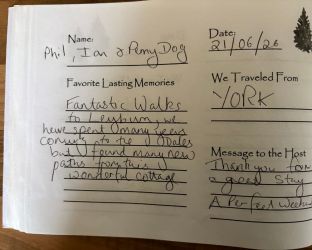 Name:
Phil, Ian & Penny Dog
Date:
21/06/26
Favorite Lasting Memories
Fantastic Walks
to Leyburn, we
have spent many years
coming to the Dales
but found many new
paths from this
wonderful cottage
We Traveled From
YORK
Message to the Host
Thank you for
a good stay
A Perfect weekend